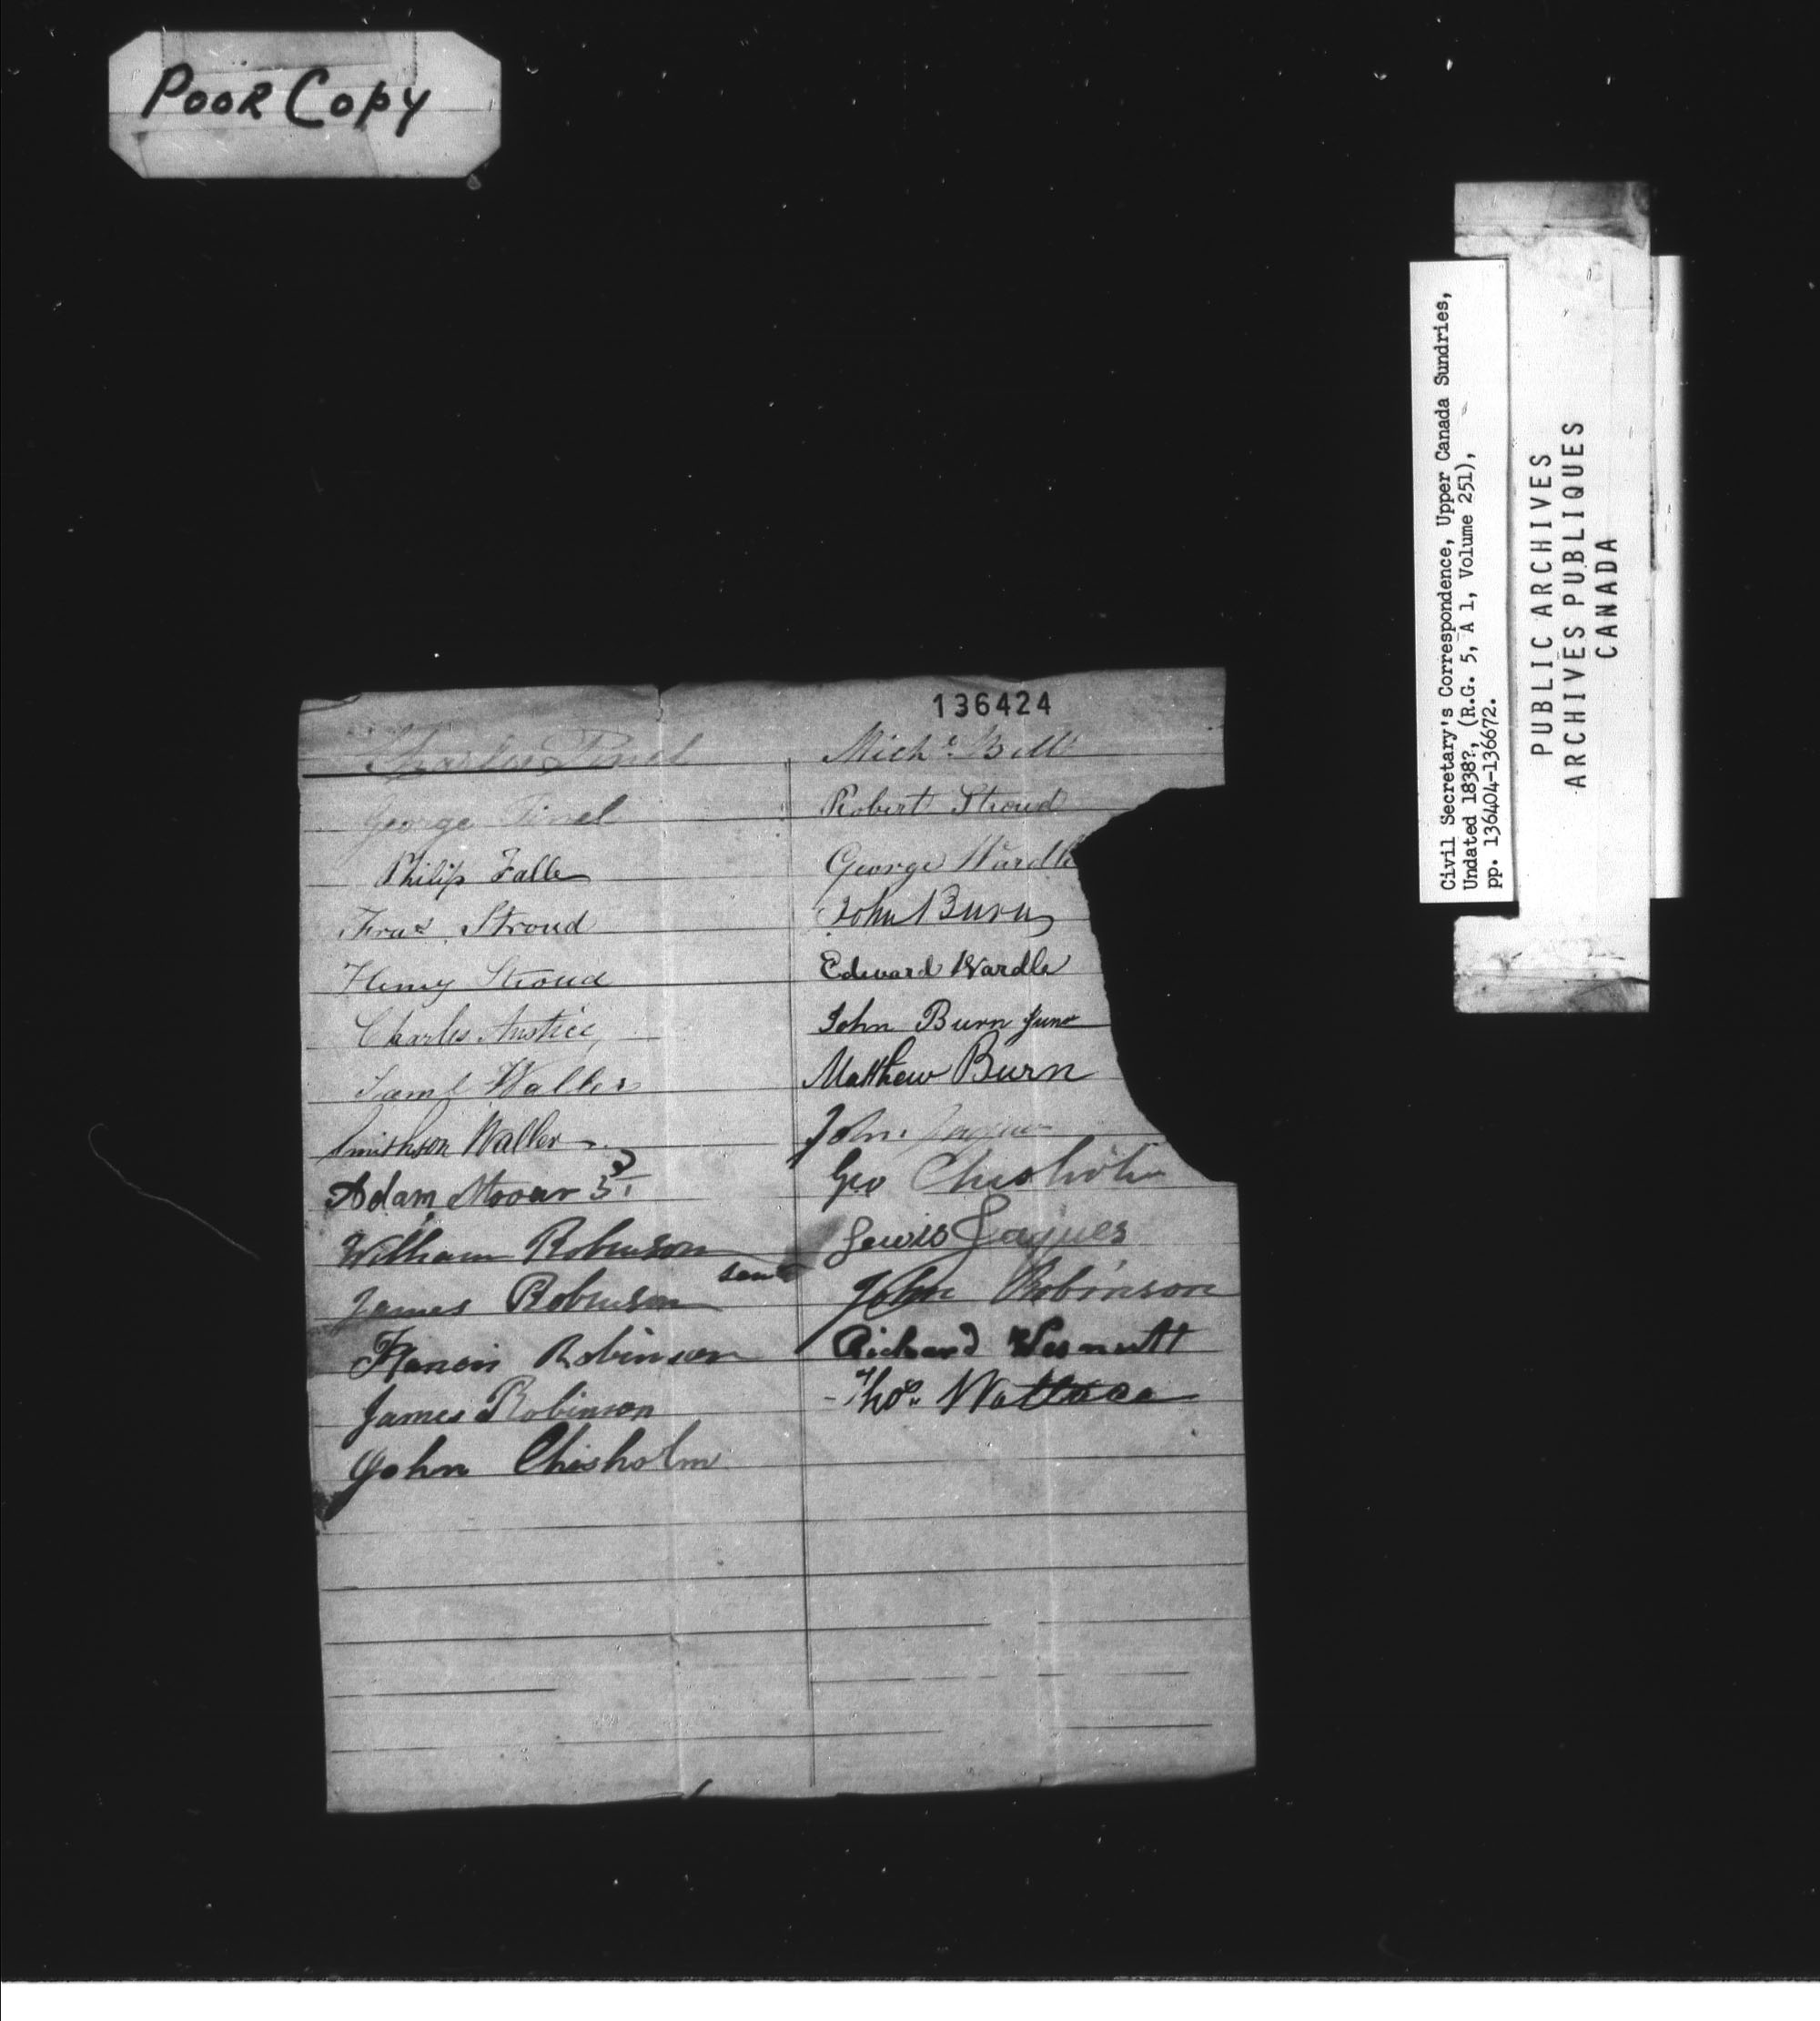 Poor Copy
Civil Secretary's Correspondence, Upper Canada Sundries,
Undated 1838?, (R.G. 5, A 1, Volume 251),
pp. 136404-136672.
PUBLIC ARCHIVES
ARCHIVES PUBLIQUES
CANADA
136424
Charles Pinel
George Pinel
Philip Falle
Fras Stroud
Henry Stroud
Charles Austice
Saml Waller
Smithson Waller
Adam
William Robinson
James Robinson Senr
Francis Robinson
James Robinson
John Chisholm
Michl Bell
Robert Stroud
George Wardle
John Burn
Edward Wardle
John Burn Junr
Matthew Burn
John
Geo Chisholm
Lewis Jaques
John Robinson
Richard
Thos. Wallace